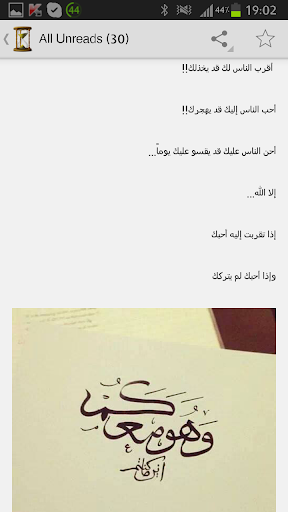 44 44% 19:02
All Unreads (30)
أقرب الناس لك قد يخذلك!!
أحب الناس إليك قد يهجرك!!
أحن الناس عليك قد يقسو عليك يوماً...
إلا الله...
إذا تقربت إليه أحبك
وإذا أحبك لم يتركك
وَهُوَ مَعَكُمْ
أين ما كنتم